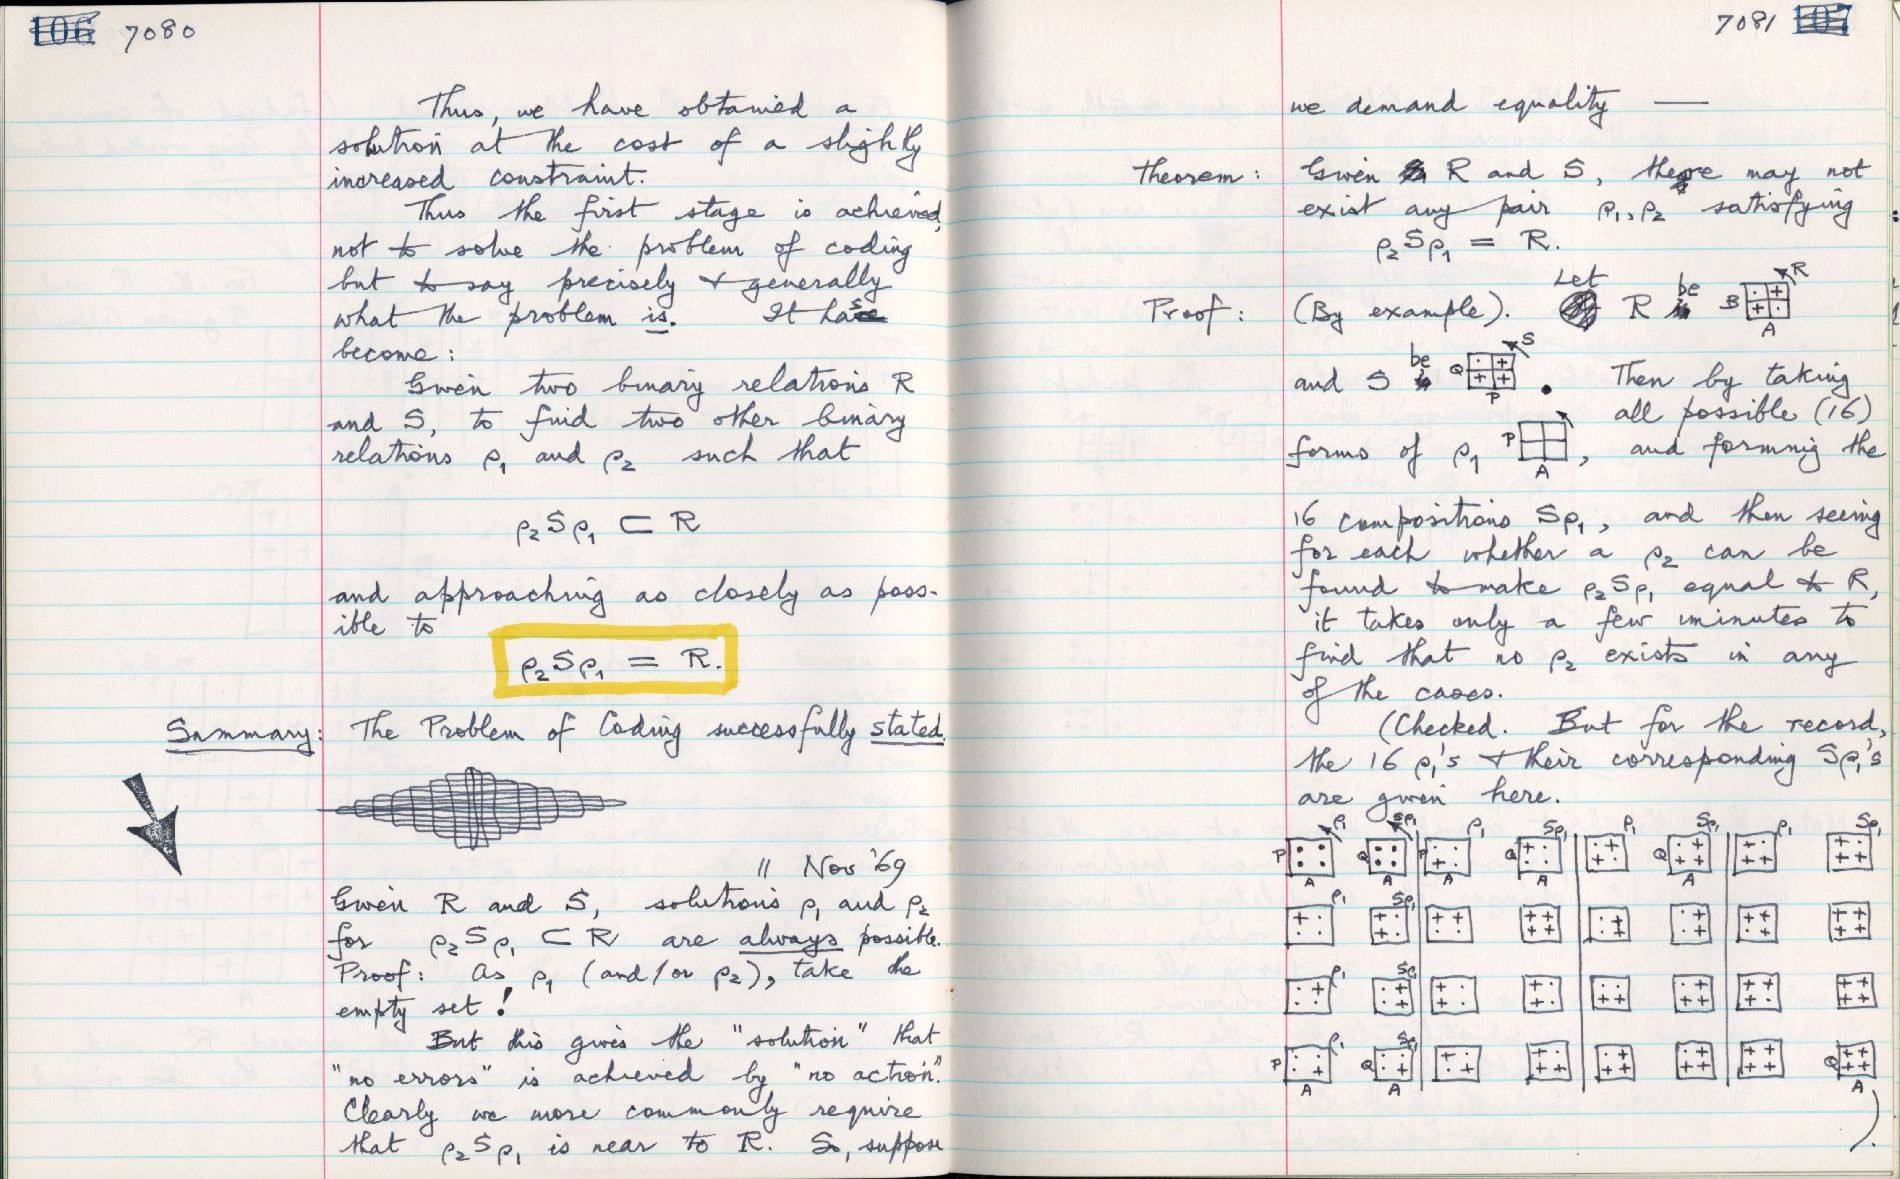 106 7080
Thus, we have obtained a
solution at the cost of a slightly
increased constraint.
Thus the first stage is achieved,
not to solve the problem of coding
but to say precisely & generally
what the problem is. It has
become:
Given two binary relations R
and S, to find two other binary
relations ρ1 and ρ2 such that
ρ2Sρ1 ⊂ R
and approaching as closely as poss-
ible to
ρ2Sρ1 = R.
Summary: The Problem of Coding successfully stated.
11 Nov '69
Given R and S, solutions ρ1 and ρ2
for ρ2Sρ1 ⊂ R are always possible.
Proof: As ρ1 (and/or ρ2), take the
empty set!
But this gives the "solution" that
"no errors" is achieved by "no action".
Clearly we more commonly require
that ρ2Sρ1 is near to R. So, suppose
7081 107
we demand equality —
Theorem: Given R and S, there may not
exist any pair ρ1, ρ2 satisfying
ρ2Sρ1 = R.
Proof: (By example). Let R be B · + + · A R
and S be Q · + + + P S . Then by taking
all possible (16)
forms of ρ1 P A , and forming the
16 compositions Sρ1, and then seeing
for each whether a ρ2 can be
found to make ρ2Sρ1 equal to R,
it takes only a few minutes to
find that no ρ2 exists in any
of the cases.
(Checked. But for the record,
the 16 ρ1's & their corresponding Sρ1's
are given here.
ρ1 Sρ1 ρ1 Sρ1 ρ1 Sρ1 ρ1 Sρ1
P Q P Q Q
A A A A A
ρ1 Sρ1
ρ1 Sρ1
P ρ1 Q Sρ1 Q
A A A
).